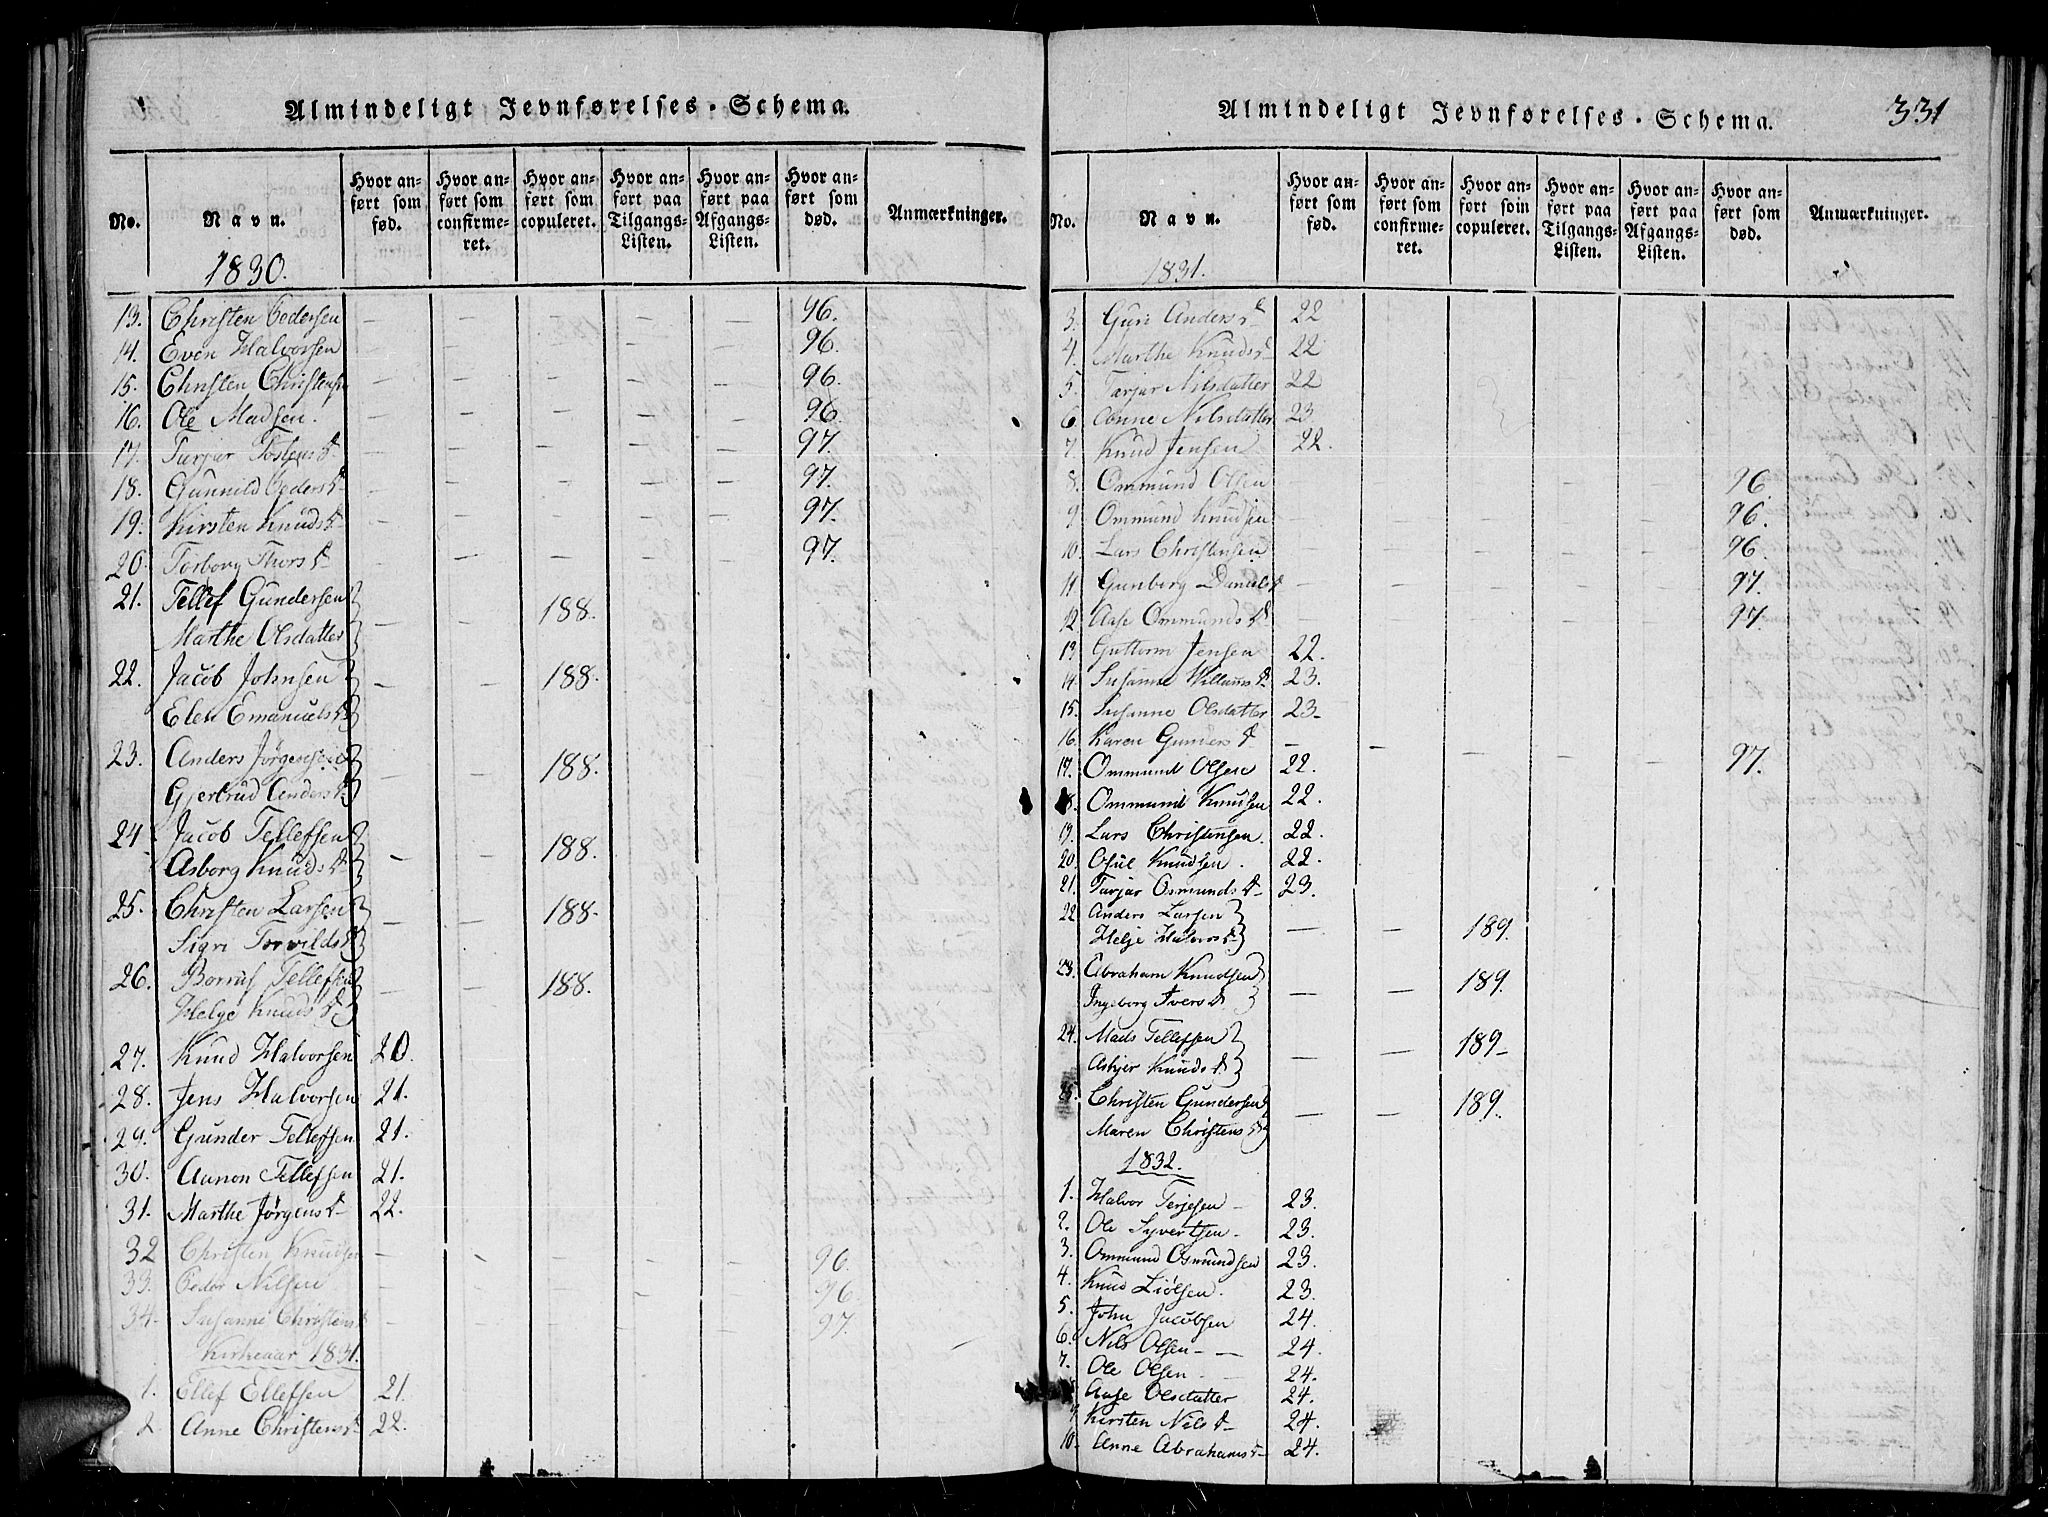 Almindeligt Jevnførelses-Schema.
No. Navn. Hvor anført som fød. Hvor anført som confirmeret. Hvor anført som copuleret. Hvor anført paa Tilgangs-Listen. Hvor anført paa Afgangs-Listen. Hvor anført som død. Anmærkninger.
1830.
13. Christen Pedersen — — — — — 96.
14. Even Halvorsen — — — — — 96.
15. Christen Christensen — — — — — 96.
16. Ole Madsen. — — — — — 96.
17. Tarjar Tostens d. — — — — — 97.
18. Gunnild Peders d. — — — — — 97.
19. Kirsten Knuds d. — — — — — 97.
20. Torborg Thors d. — — — — — 97.
21. Tellef Gundersen
Marthe Olsdatter — — 188.
22. Jacob Johnsen
Elen Emanuels d. — — 188.
23. Anders Jørgensen
Gjertrud Anders d. — — 188.
24 Jacob Tellefsen
Asborg Knuds d. — — 188.
25. Christen Larsen
Sigri Torvilds d. — — 188.
26. Tellefsen
Helge Knuds d. — — 188.
27. Knud Halvorsen 20.
28. Jens Halvorsen 21.
29. Gunder Tellefsen 21.
30. Aanon Tellefsen 21.
31. Marthe Jørgens d. 22.
32 Christen Knudsen — — — — — 96.
33. Peder Nilsen — — — — — 96.
34. Susanne Christens d. — — — — — 97.
Kirkeaar 1831.
1. Ellef Ellefsen 21.
2. Anne Christens d. 22.
Almindeligt Jevnførelses-Schema.
331
No. Navn. Hvor anført som fød. Hvor anført som confirmeret. Hvor anført som copuleret. Hvor anført paa Tilgangs-Listen. Hvor anført paa Afgangs-Listen. Hvor anført som død. Anmærkninger.
1831.
3. Guri Anders d. 22
4. Marthe Knuds d. 22
5. Tarjar Nilsdatter 22
6 Anne Nilsdatter 23
7. Knud Jensen 22.
8. Ommund Olsen — — — — — 96.
9. Ommund Knudsen — — — — — 96.
10. Lars Christensen — — — — — 96.
11 Gunborg Daniels d. — — — — — 97.
12 Aase Ommunds d. — — — — — 97.
13 Guttorm Jensen 22.
14. Susanne Willums d. 23.
15. Susanne Olsdatter 23.
16. Karen Gunders d. — — — — — 97.
17. Ommund Olsen 22.
18. Ommund Knudsen 22.
19. Lars Christensen. 22.
20. Osul Knudsen. 22.
21. Tarjar Osmunds d. 23.
22 Anders Larsen
Helje Halvors d. — — 189.
23. Abraham Knudsen
Ingeborg Ivers d. — — 189.
24. Mads Tellefsen
Asbjer Knuds d. — — 189.
25. Christen Gundersen
Maren Christens d. — — 189.
1832.
1. Halvor Terjesen 23.
2. Ole Syvertsen 23.
3. Ommund Osmundsen 23.
4. Knud Liølsen. 23.
5. John Jacobsen 24.
6. Nils Olsen 24.
7. Ole Olsen 24.
Aase Olsdatter 24.
9 Kirsten Nils d. 24.
10 Anne Abrahams d. 24.